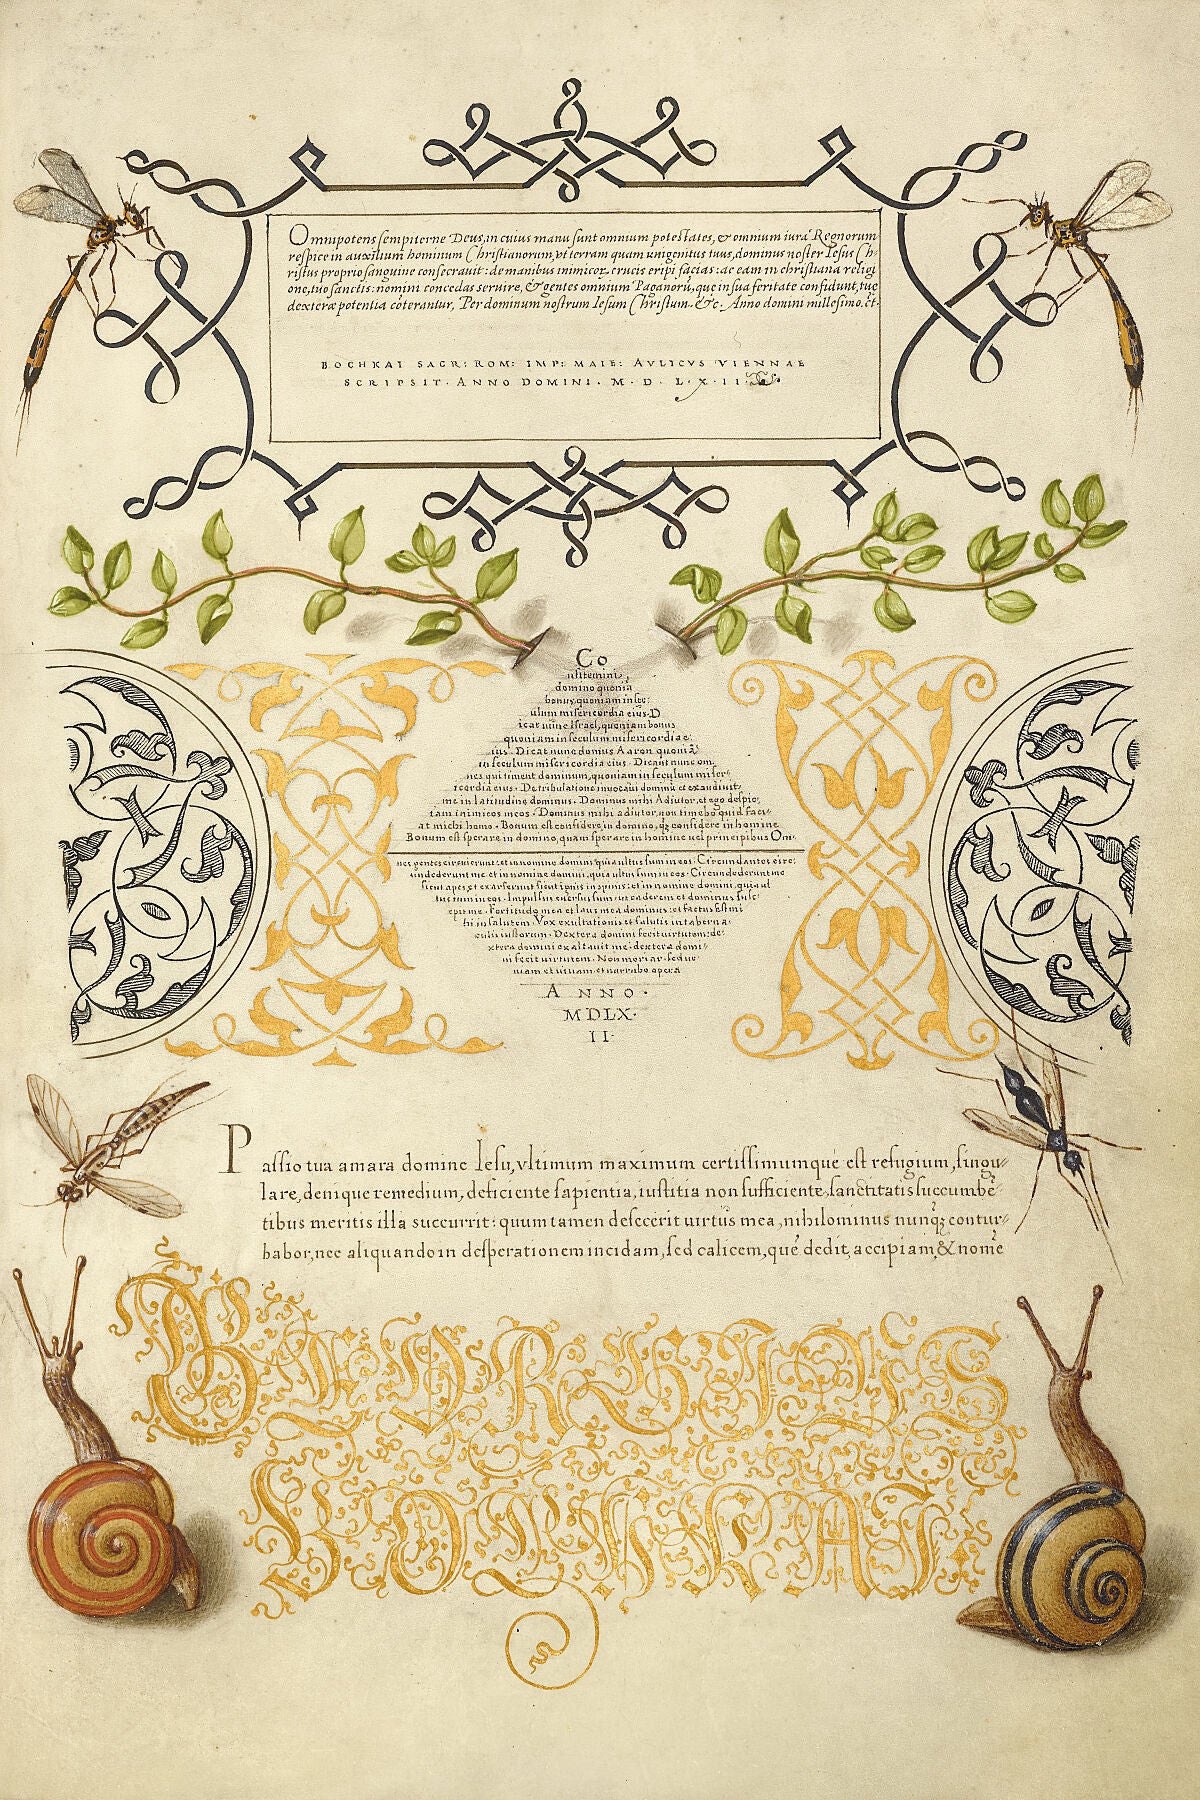 Omnipotens sempiterne Deus, in cuius manu sunt omnium potestates, & omnium iura Regnorum
respice in auxilium hominum Christianorum, vt terram quam unigenitus tuus, dominus noster Iesus Ch-
ristus proprio sanguine consecravit: de manibus inimicor. crucis eripi facias: ac eam in christiana religi
one, tuo sanctis: nomini concedas servire, & gentes omnium Paganorū, que in sua feritate confidunt, tue
dexteræ potentia cōterantur, Per dominum nostrum Iesum Christum. &c. Anno domini millesimo. &t
BOCHKAI SACR: ROM: IMP: MAIE: AVLICVS VIENNAE
SCRIPSIT. ANNO DOMINI. M. D. L. X. II
Co
nfitemini
domino quoniā
bonus, quoniam in sec:
ulum misericordia eius. D
icat nunc Israel, quoniam bonus
quoniam in seculum misericordia e:
ius. Dicat nunc domus Aaron quoniā
in seculum misericordia eius. Dicant nunc om
nes qui timent dominum, quoniam in seculum miser-
icordia eius. De tribulatione invocavi dominū et exaudivit
me in latitudine dominus. Dominus mihi Adiutor, et ego despic,
iam inimicos meos. Dominus mihi adiutor, non timebo quid faci-
at michi homo. Bonum est confidere in domino, qȝ confidere in homine
Bonum est sperare in domino, quam sperare in homine vel principibus Om-
nes gentes circuierunt: et in nomine domini, quia ultus sum in eos. Circumdantes circ:
undederunt me et in nomine domini, quia ultus sum in eos. Circundederunt me
sicut apes, et exarserunt sicut ignis in spinis: et in nomine domini, quia ul
tus sum in eos. Impulsus eversus sum, ut caderem et dominus susc
epit me. Fortitudo mea et laus mea dominus: et factus est mi
hi in salutem. Vox exultationis et salutis in taberna:
culis iustorum. Dextera domini fecit virtutem: de:
xtera domini exaltavit me. dextera domi-
ni fecit virtutem. Non moriar. sed vi
uam et vivam. et narrabo opera
ANNO.
MDLX.
II.
Passio tua amara domine Iesu, vltimum maximum certissimumque est refugium, singu-
lare, denique remedium, deficiente sapientia, iustitia non sufficiente, sanctitatis succumbē-
tibus meritis illa succurrit: quum tamen defecerit virtus mea, nihilominus nunqȝ contur-
babor, nec aliquando in desperationem incidam, sed calicem, que dedit, accipiam, & nomē
GEORGIVS
BOCHKAI